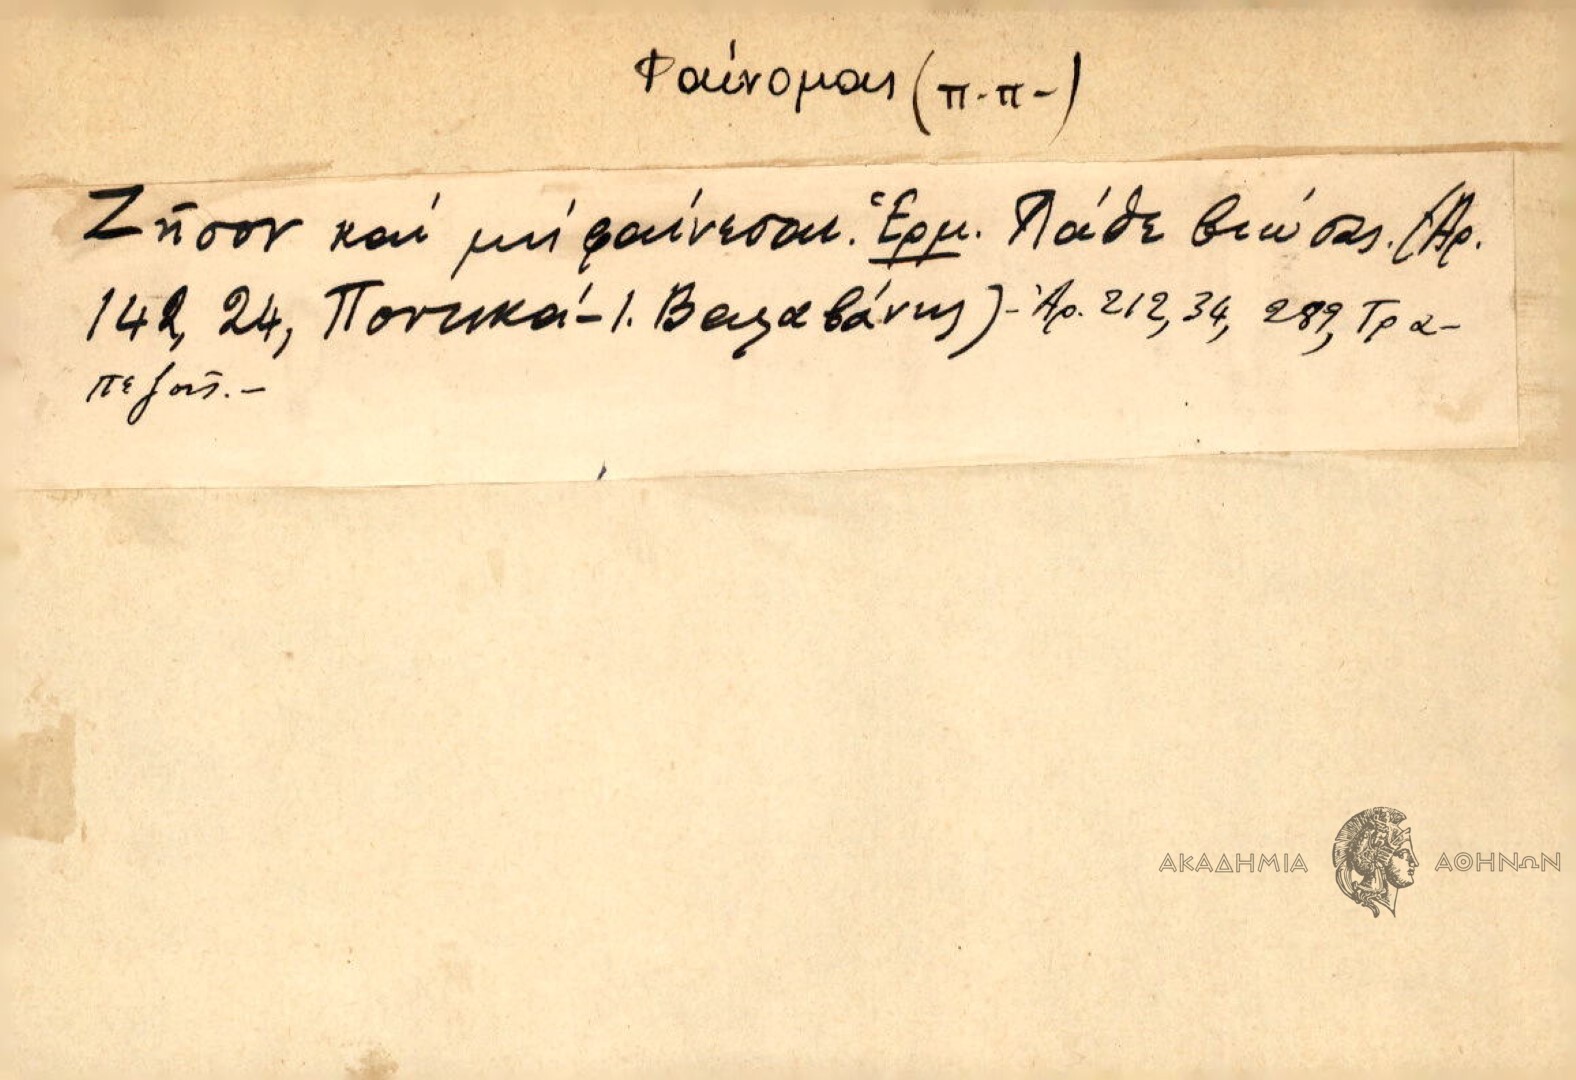 Φαίνομαι (π.π-)
Ζῆσον καί μή φαίνεσαι. Ἑρμ. Λάθε βιώσας. (Ἀρ.
142, 24, Ποντικά-Ι. Βαλαβάνης)-Ἀρ. 212, 34, 289, Τρα-
πεζοῦς.-
ΑΚΑΔΗΜΙΑ ΑΘΗΝΩΝ